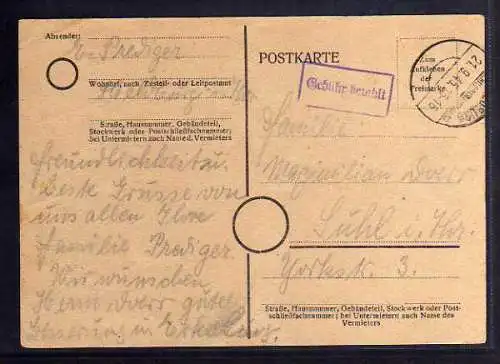 Absender:
Prediger
Wohnort, auch Zustell- oder Leitpostamt
Straße, Hausnummer, Gebäudeteil,
Stockwerk oder Postschließfachnummer;
bei Untermietern auch Name d. Vermieters
Beste Grüsse von
uns allen Ihre
Familie Prediger.
Wir wünschen
Herrn gute
in
POSTKARTE
Gebühr bezahlt
Zum
Aufkleben
der
Freimarke
21.9.45
Familie
Maximilian
Suhl i. Thür.
Yorkstr. 3.
Straße, Hausnummer, Gebäudeteil, Stockwerk oder Post-
schließfachnummer; bei Untermietern auch Name des
Vermieters